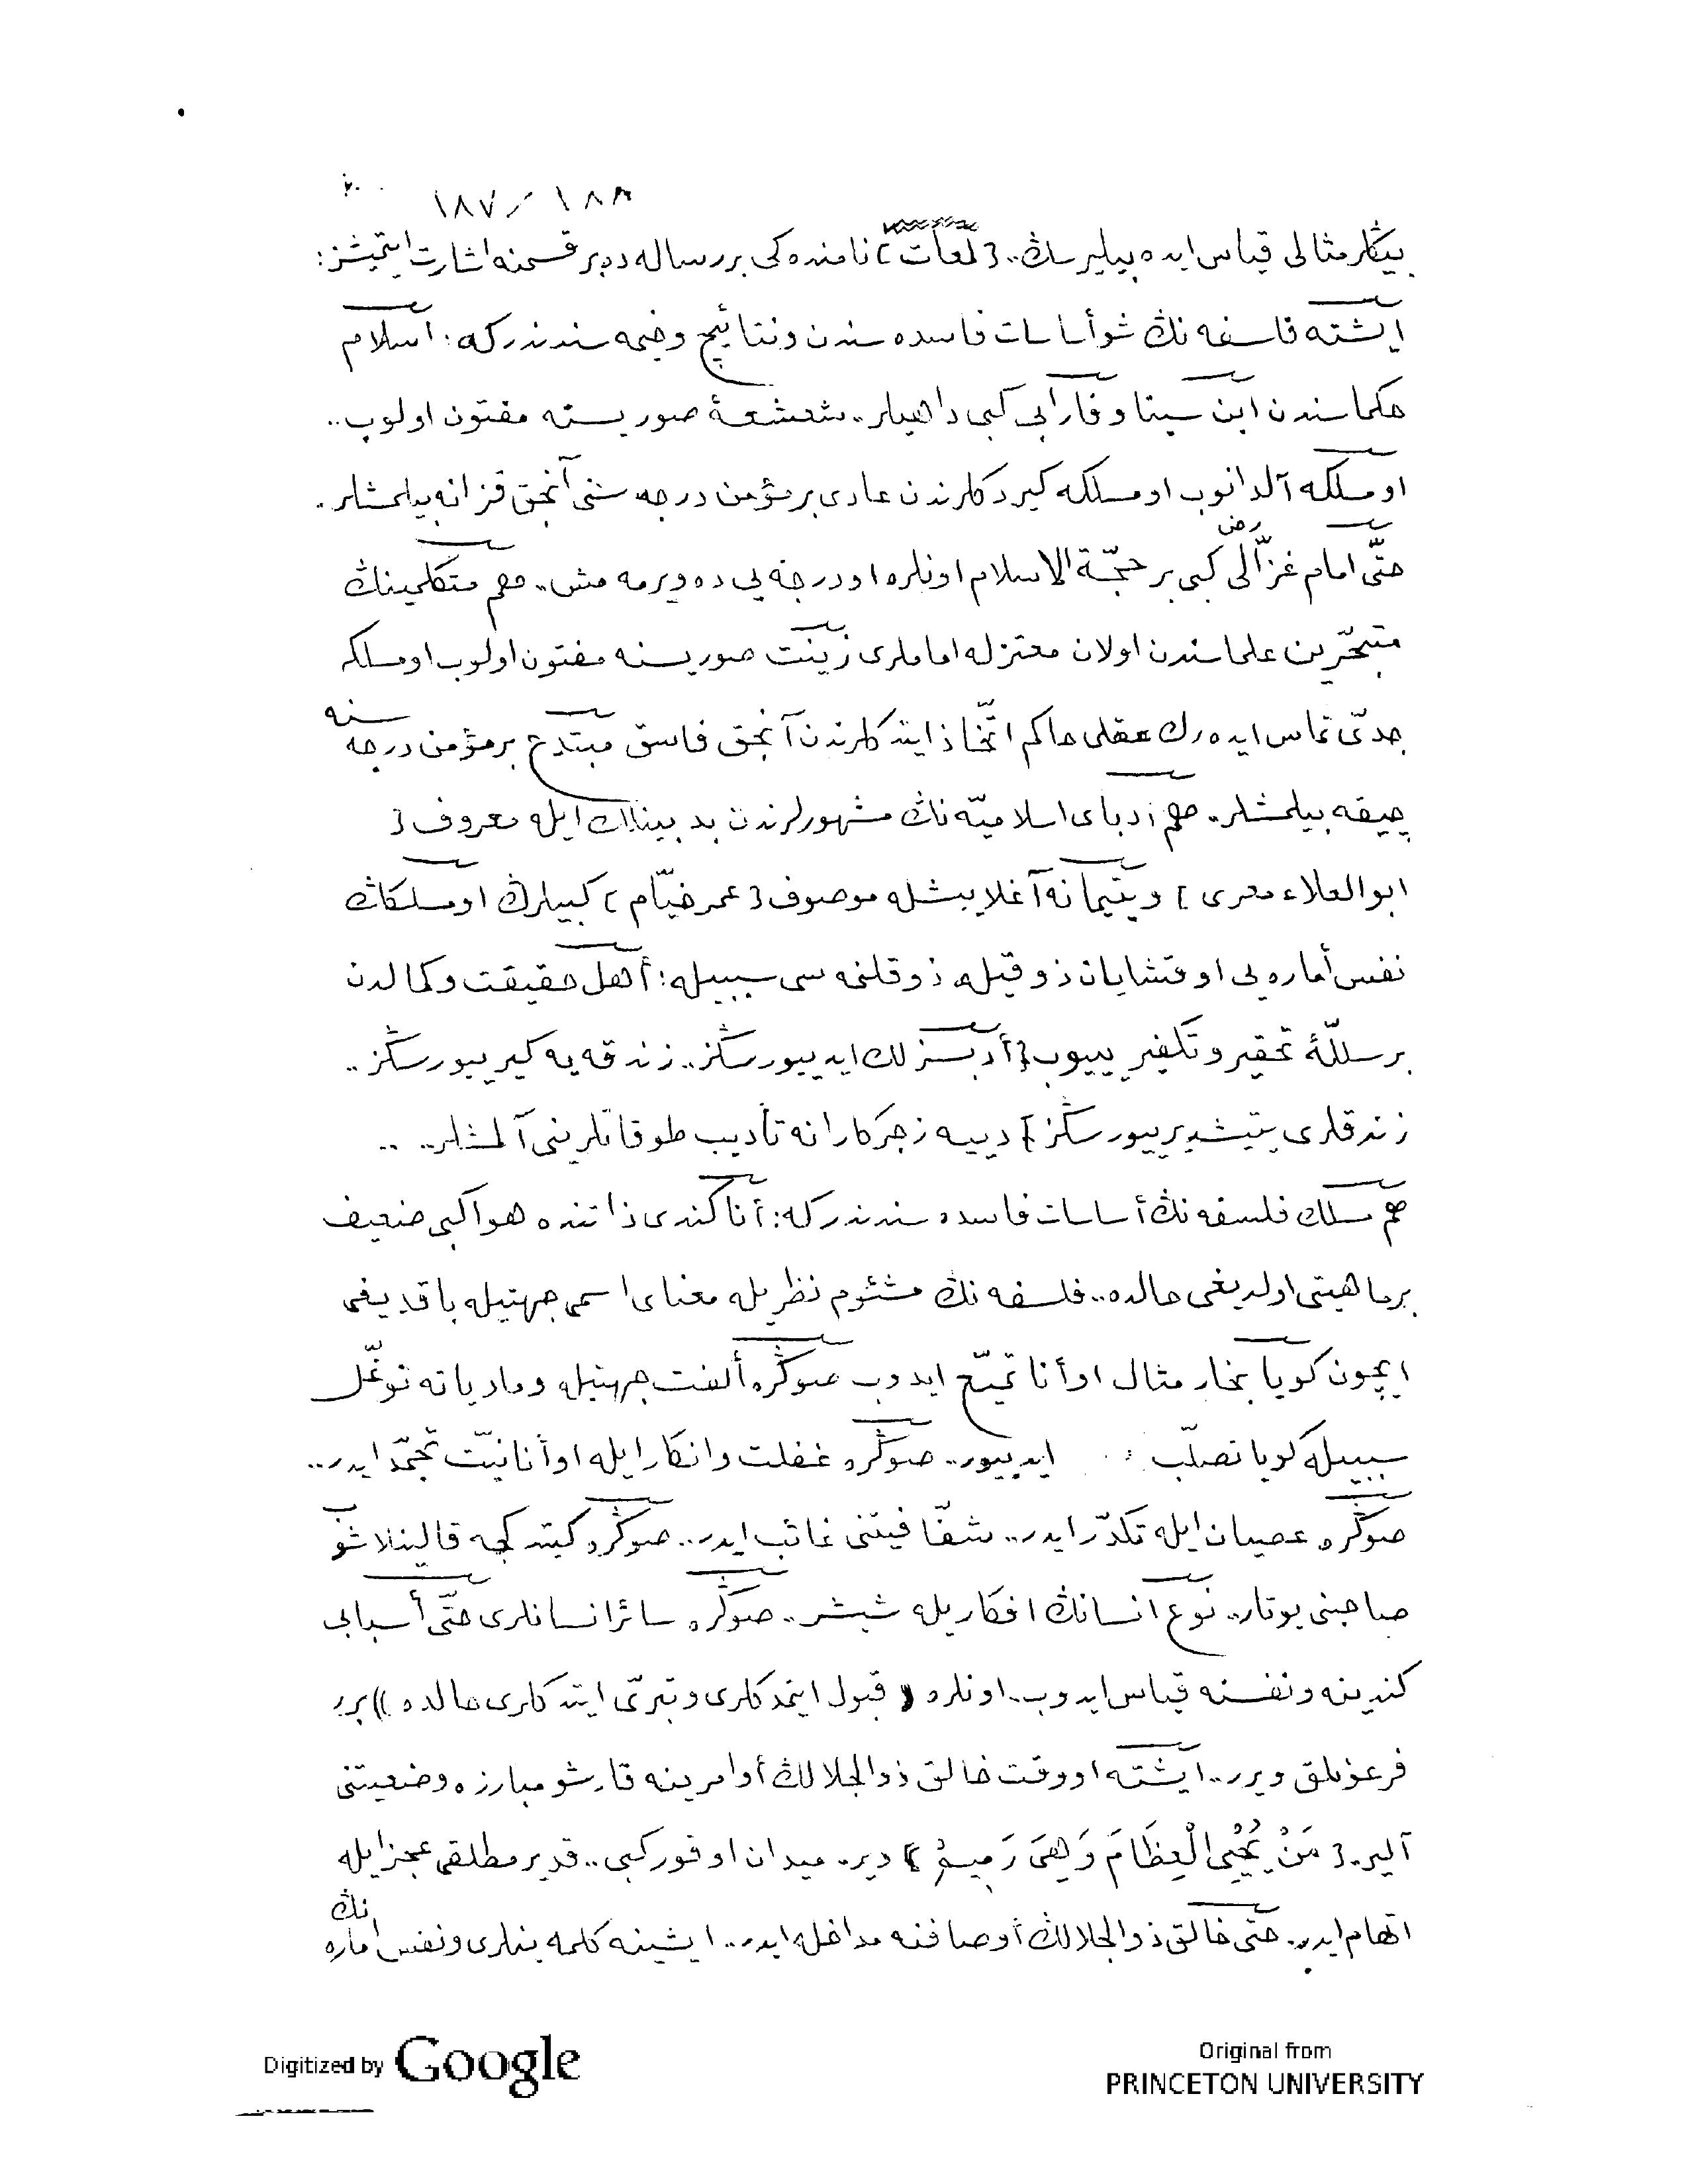 ١٨٧ / ١٨٨
بیڭلر مثالی قیاس ایده بیلیرسڭ.. [لمعات] نامنده كی بر رساله ده بر قسمنه اشارت ایتمیشز:
ایشته فلسفه نڭ شو أساسات فاسده سندن و نتائج وخیمه سندندركه: اسلام
حكماسندن ابن سینا و فارابی كبی داهیلر.. شعشعۀ صوریسنه مفتون اولوب..
او مسلكه آلدانوب او مسلكه كیردكلرندن عادی بر مؤمن درجه سنی آنجق قزانه بیلمشلر.
حتّی امام غزّالی رض كبی بر حجّة الاسلام اونلره او درجه یی ده ویرمه مش.. هم متكلمینڭ
متبحّرین علماسندن اولان معتزله اماملری زینت صوریسنه مفتون اولوب او مسلكه
جدّی تماس ایده رك عقلی حاكم اتّخاذ ایتدكلرندن آنجق فاسق مبتدع بر مؤمن درجه سنه
چیقه بیلمشلر.. هم ادبای اسلامیّه نڭ مشهورلرندن بدبینلك ایله معروف [
ابو العلاء معری ] و یتیمانه آغلاییشله موصوف [عمر خیّام] كبیلرڭ او مسلكڭ
نفس أماره یی اوقشایان ذوقیله ذوقلنمه سی سببیله: أهل حقیقت و كمالدن
بر سللۀ تحقیر و تكفیر یییوب [أدبسزلك ایدییورسڭز.. زندقه یه كیرییورسڭز..
زندقلری یتیشدیرییورسڭز] دییه زجركارانه تأدیب طوقاتلرینی آلمشلر.. ..
هم مسلك فلسفه نڭ أساسات فاسده سندندركه: أنا كندی ذاتنده هوا كبی ضعیف
بر ماهیتی اولدیغی حالده.. فلسفه نڭ مشئوم نظریله معنای اسمی جهتیله باقدیغی
ایچون كویا بخار مثال او أنا تمیّع ایدوب صوڭره ألفت جهتیله و مادیاته توغّل
سببیله كویا تصلّب ایدییور.. صوڭره غفلت و انكار ایله او أنانیّت تجمّد ایدر..
صوڭره عصیان ایله تكدّر ایدر.. شفّافیتنی غائب ایدر.. صوڭره كیتدكجه قالینلاشوب
صاحبنی یوتار.. نوع انسانڭ افكاریله شیشر.. صوڭره سائر انسانلری حتّی أسبابی
كندینه و نفسنه قیاس ایدوب.. اونلره ((قبول ایتمدكلری و تبرّی ایتدكلری حالده)) برر
فرعونلق ویرر.. ایشته او وقت خالق ذو الجلالڭ أوامرینه قارشو مبارزه وضعیتنی
آلیر. [مَنْ يُحْيِي الْعِظَامَ وَهِيَ رَمِيمٌ] دیر. میدان اوقور كبی.. قدیر مطلقی عجز ایله
اتهام ایدر. حتّی خالق ذو الجلالڭ أوصافنه مداخله ایدر.. ایشینه كلمه ینلری و نفس اماره نڭ
Digitized by Google
Original from
PRINCETON UNIVERSITY